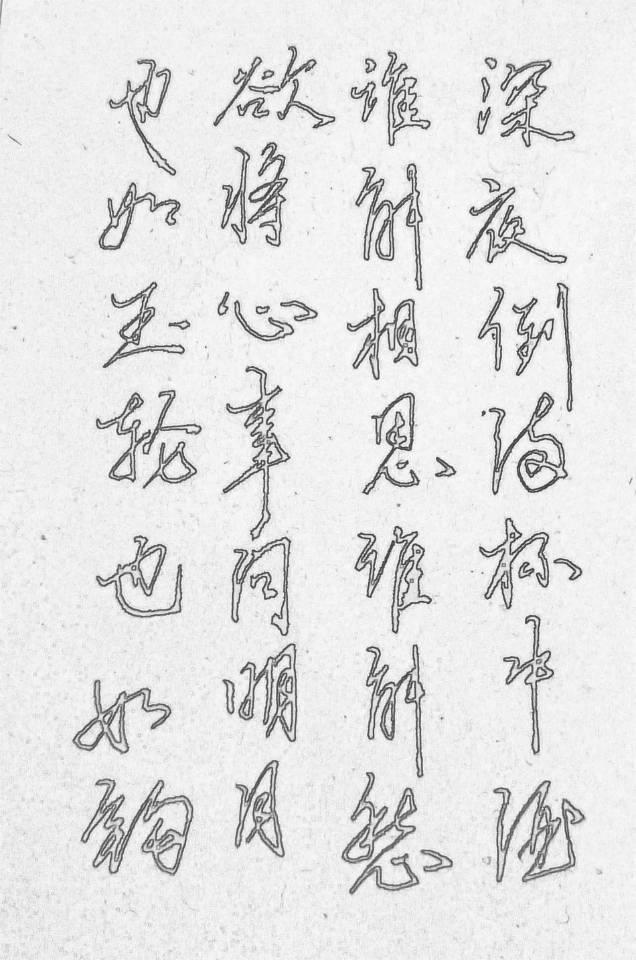 深夜倒满杯中酒
谁解相思谁解愁
欲将心事问明月
也如玉轮也如钩